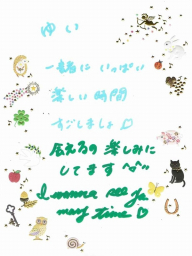 ゆい
一緒に いっぱい
楽しい 時間
すごしましょ♡
会えるの 楽しみに
してます
I wanna see Ya
many time♡